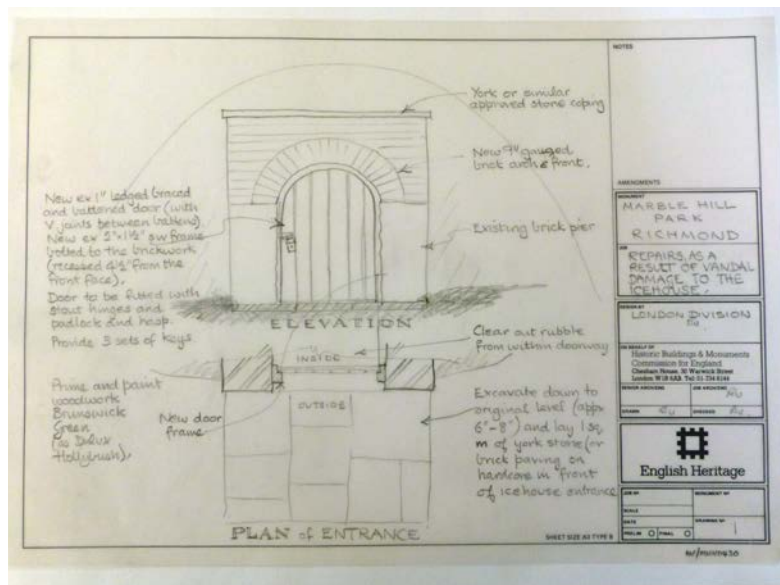 York or similar
approved stone coping
New 9" gauged
brick arch & front.
Existing brick pier
New ex 1" ledged braced
and battened door (with
V joints between battens).
New ex 3"x1½" sw frame
bolted to the brickwork
(recessed 4½" from the
front face).
Door to be fitted with
stout hinges and
padlock and hasp.
Provide 3 sets of keys.
Prime and paint
woodwork
Brunswick
Green
(as Dulux
Hollybush).
ELEVATION
INSIDE
Clear out rubble
from within doorway
New door
frame
OUTSIDE
Excavate down to
original level (appx
6"-8") and lay 1 sq.
m of york stone (or
brick paving on
hardcore in front
of icehouse entrance
PLAN of ENTRANCE
NOTES
AMENDMENTS
MONUMENT
MARBLE HILL
PARK
RICHMOND
JOB
REPAIRS, AS A
RESULT OF VANDAL
DAMAGE TO THE
ICEHOUSE.
DESIGN BY
LONDON DIVISION
ON BEHALF OF
Historic Buildings & Monuments
Commission for England
Chesham House, 30 Warwick Street
London W1R 5RD. Tel: 01-734 8144
SENIOR ARCH/ENG
JOB ARCH/ENG
DRAWN
CHECKED
English Heritage
JOB Nº
MONUMENT Nº
SCALE
DATE
DRAWING Nº
1
PRELIM
FINAL
SHEET SIZE A3 TYPE B